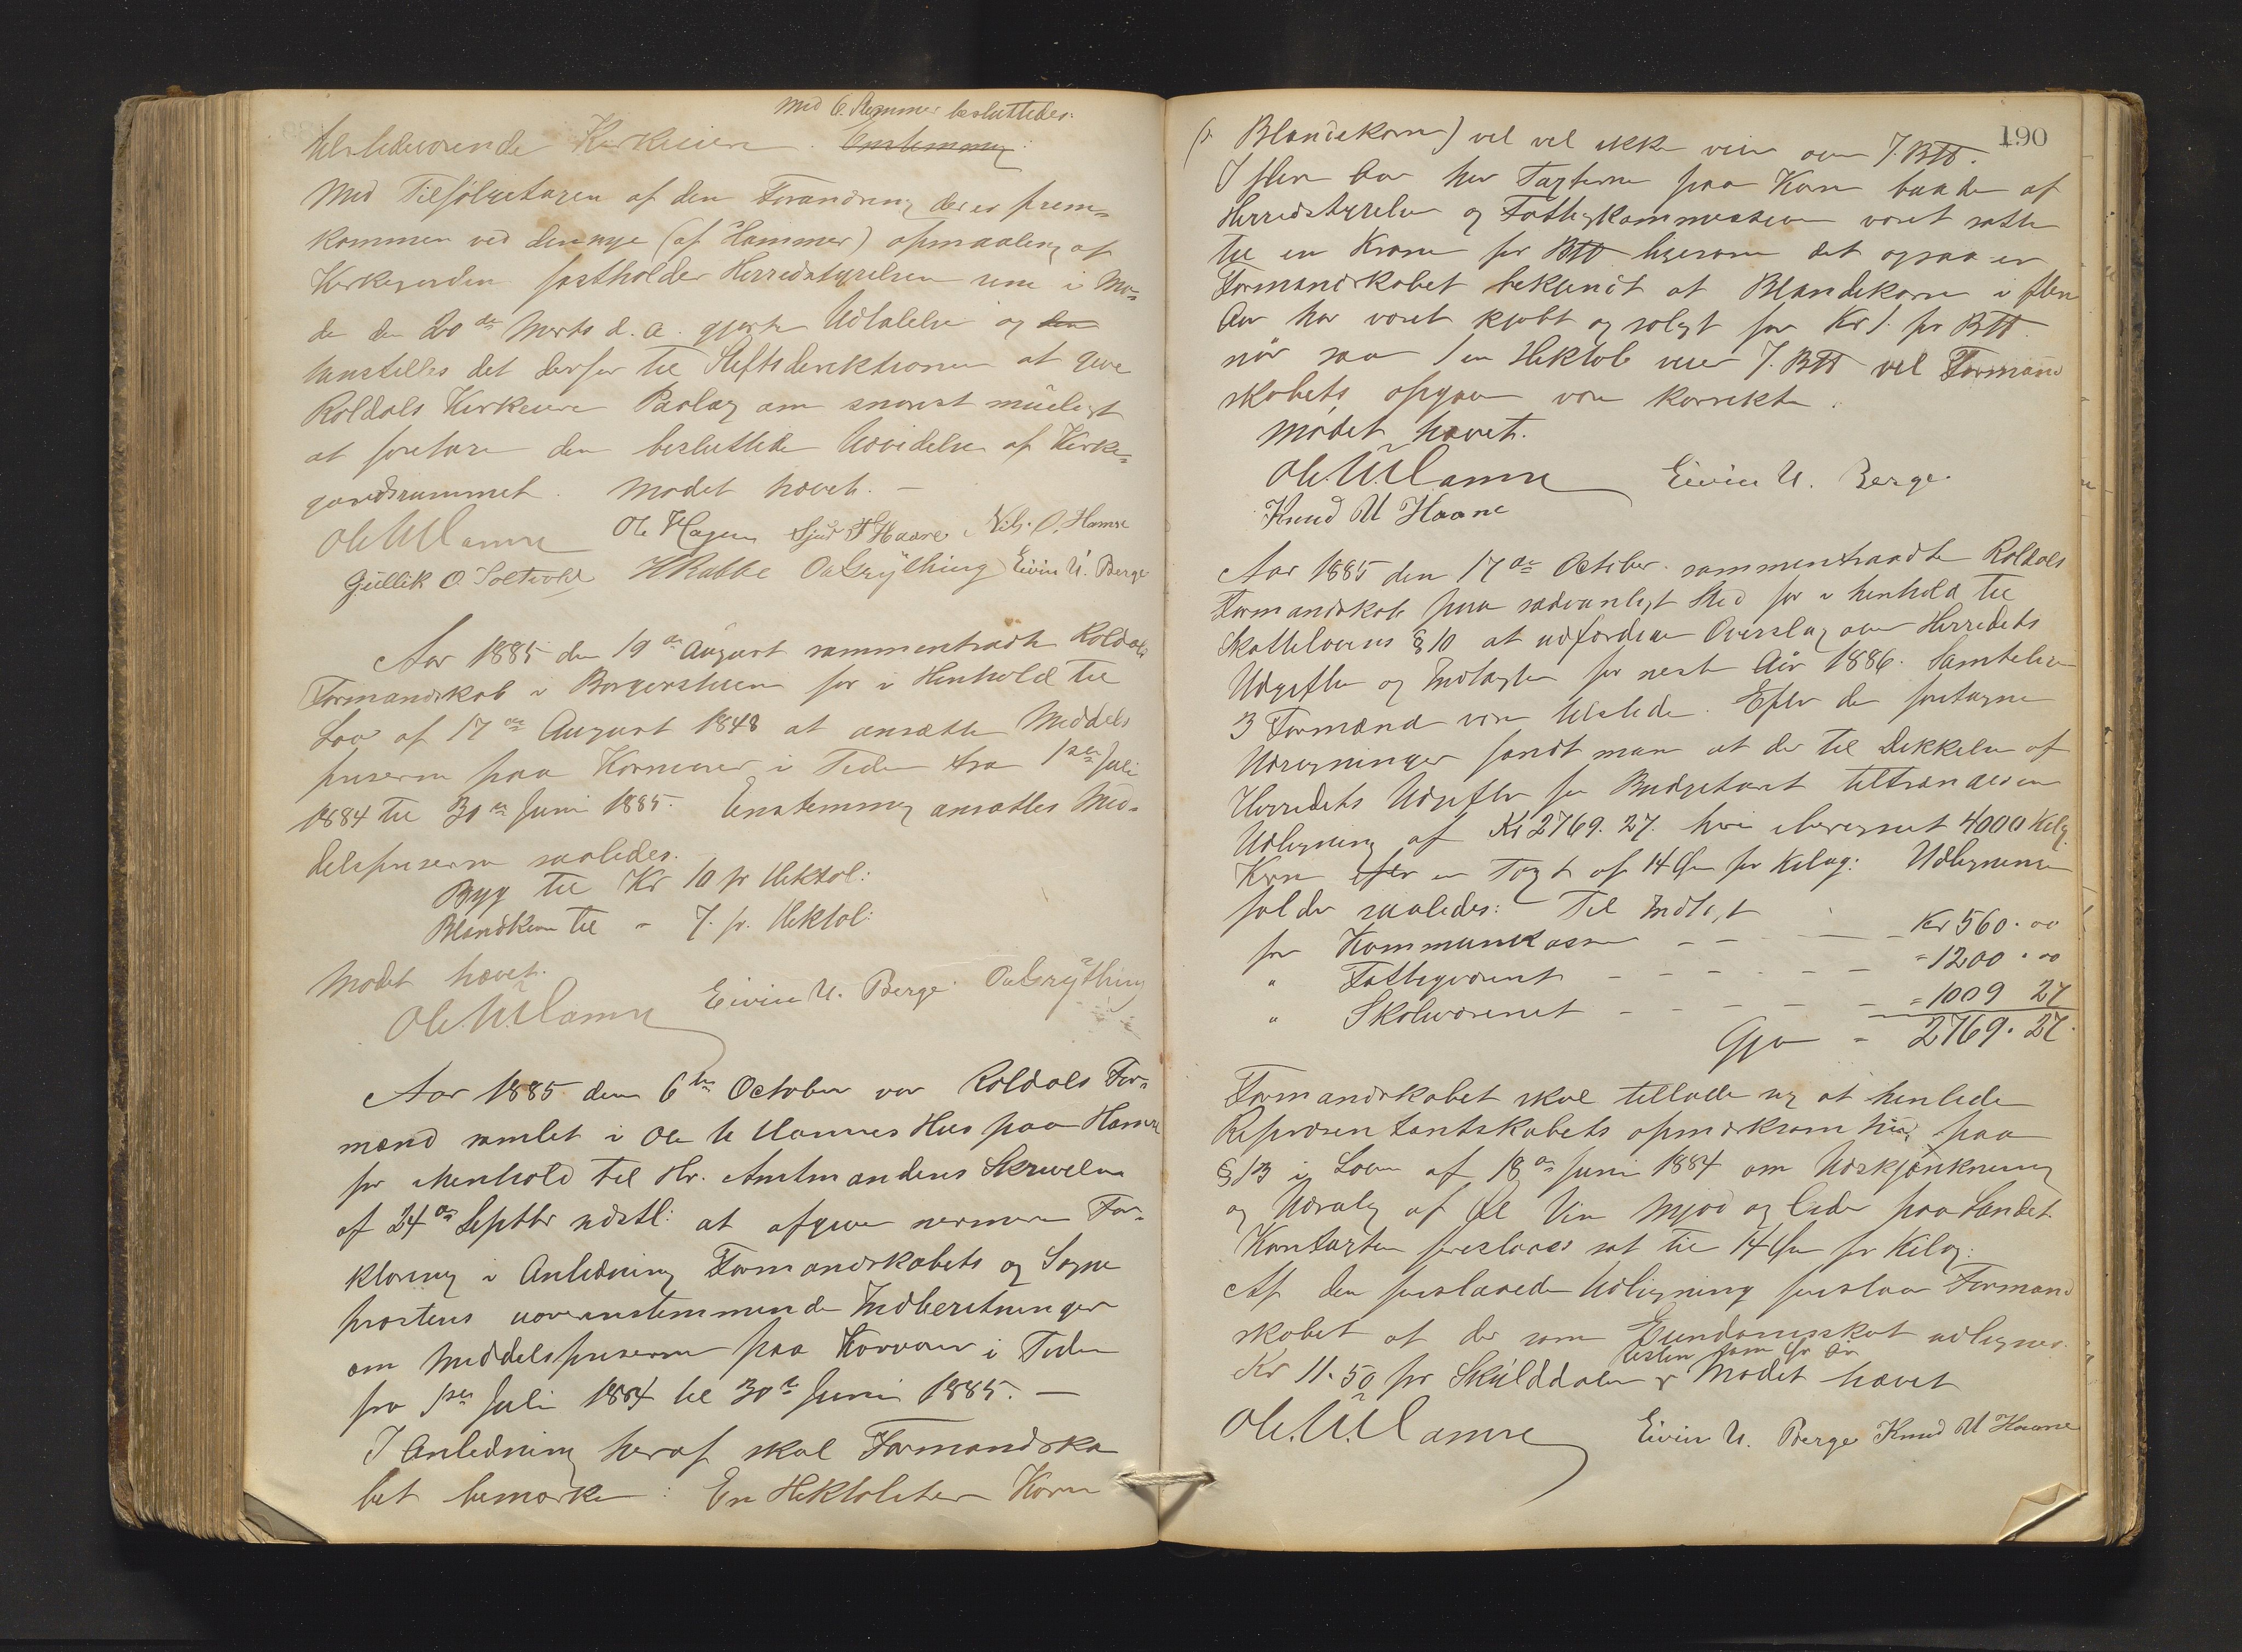 med 6. Stemmer besluttedes:
tilstedeværende Kirkeeiere. Enstemmig
Med Tilføluetagen af den Forandring der er frem-
kommen ved den nye (af Hammer) opmaaling af
Kirkegarden fastholder Herredstyrelsen sine i Mø-
de den 20de Marts d. a. gjorte Udtalelse og den
henstilles det derfor til Stiftsdirektionen at give
Røldals Kirkeeiere Paalæg om snarest muligt
at foretage den besluttede Udvidelse af Kirke-
gaardsrummet. Mødet hævet. —
Ole U Hamre Ole Hagen Sjur T Haare Nils. O. Hamre
Gullik O. Soltvold H Rabbe O a Grytting Eivin U. Berge
Aar 1885 den 19de August sammentraadte Røldals
Formandskab i Borgerstuen for i Henhold til
Lov af 17de August 1848 at ansætte Middels
priserne paa Kornvarer i Tiden fra 1ste Juli
1884 til 30te Juni 1885. Enstemmig ansattes Mid-
delspriserne saaledes.
Byg til Kr 10 pr Hektol:
Blandkorn til - 7. pr. Hektol:
Mødet hævet.
Ole. U. Hamre Eivin U. Berge. O a Grytting
Aar 1885 den 6te October var Røldals For-
mænd samlet i Ole U Hamres Hus paa Hamre
for i henhold til Hr. Amtmandens Skrivelse
af 24de Septbr sidstl: at afgive nermere For-
klaring i Anledning Formandskabets og Sogne
prestens uoverenstemmende Indberetninger
om Middelspriserne paa Kornvarer i Tiden
fra 1ste Juli 1884 til 30te Juni 1885. —
I Anledning heraf skal Formandska
bet bemærke: En Hektoliter Korn
190
(s. Blandekorn) vel vel ikke veie over 7. Btt.
I flere Aar har Taxterne paa Korn baade af
Herredstyrelsen og Fattigkommissionen været satte
til en Krone pr Btt ligesom det ogsaa er
Formandskabet bekjendt at Blandekorn i flere
Aar har været kjøbt og solgt for Kr 1. pr Btt.
når saa 1 en Hektol veier 7. Btt vel Formand
skabets opgave være korrekte.
Mødet hævet.
Ole. U. Hamre Eivin U. Berge.
Knud U Haane
Aar 1885 den 17de October sammentraadte Røldals
Formandskab paa sædvanligt Sted for i henhold til
Skattelovens § 10 at udfærdige Overslag over Herredets
Udgifter og Indtægter for neste Aar 1886. Samtlige
3 Formænd vare tilstede. Efter de foretagne
Udregninger fandt man at der til Dekkelse af
Herredets Udgifter for Budgetaaret tiltrænges en
Udligning af Kr 2769. 27. hvori iberegnet 4000 Kilg
Korn efter en Taxt af 14 Øre pr Kilog: Udligningen
falder saaledes: Til Indtægt
for Kommunekassen — — — Kr 560. 00
" Fattigvæsenet — — — — - 1200. 00
" Skolevæsenet — — — — - 1009 27
Gjør - 2769. 27.
Formandskabet skal tillade sig at henlede
Repræsentantskabets opmærksomhed paa
§ 13 i Loven af 18de Juni 1884 om Udskjænkning
og Udsalg af Øl Vin Mjød og Cider paa Landet.
Korntaxten foreslaaes sat til 14 Øre pr Kilog:
Af den foreslaaede Udligning foreslaar Formand
skabet at der som Eiendomsskat udlignes
Kr 11. 50 pr Skylddaler som før Mødet hævet
Ole. U. Hamre Eivin U. Berge Knud U Haane